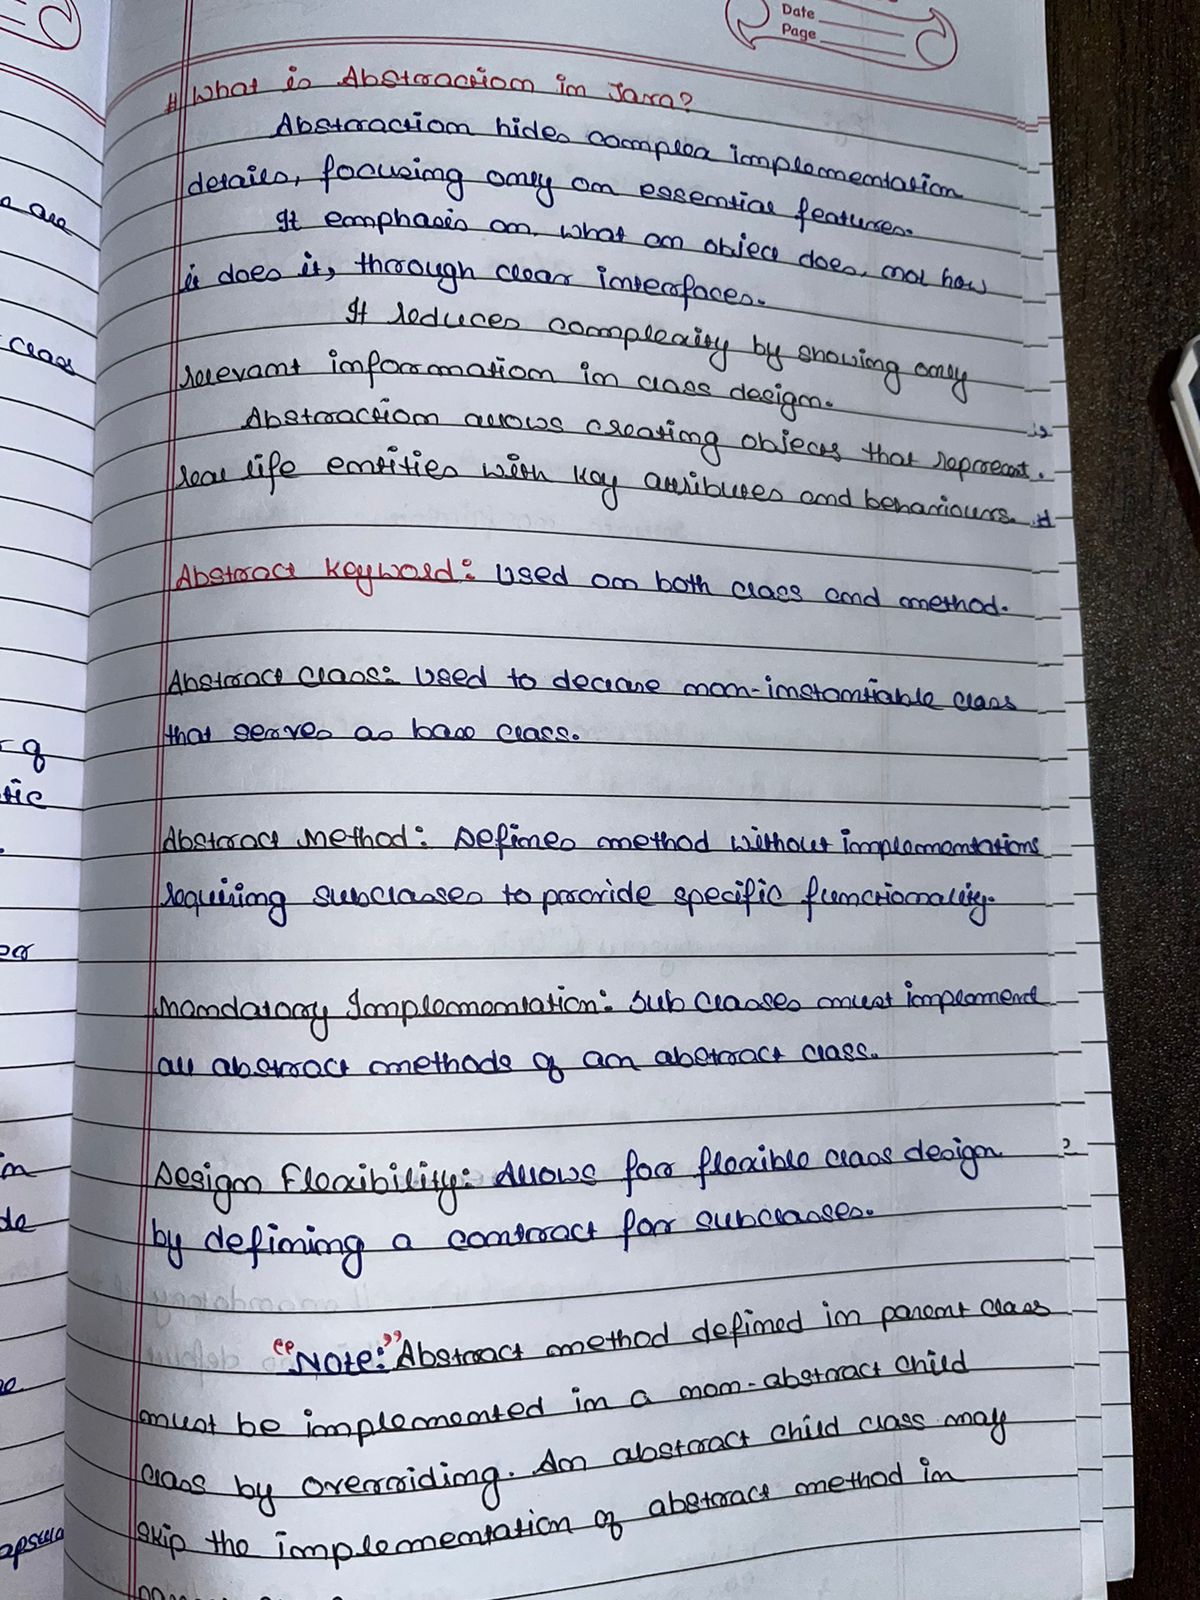 Date
Page
# What is Abstraction in Java?
Abstraction hides complex implementation
details, focusing only on essential features.
It emphasis on what an object does, not how
it does it, through clear interfaces.
It reduces complexity by showing only
relevant information in class design.
Abstraction allows creating objects that represent
real life entities with key attributes and behaviours.
Abstract Keyword: Used on both class and method.
Abstract Class: Used to declare non-instantiable class
that serves as base class.
Abstract Method: Defines method without implementations
requiring subclasses to provide specific functionality.
Mandatory Implementation: Sub classes must implement
all abstract methods of an abstract class.
Design Flexibility: Allows for flexible class design
by defining a contract for subclasses.
"Note:" Abstract method defined in parent class
must be implemented in a non-abstract child
class by overriding. An abstract child class may
skip the implementation of abstract method in
are
class
of
tic
in
de